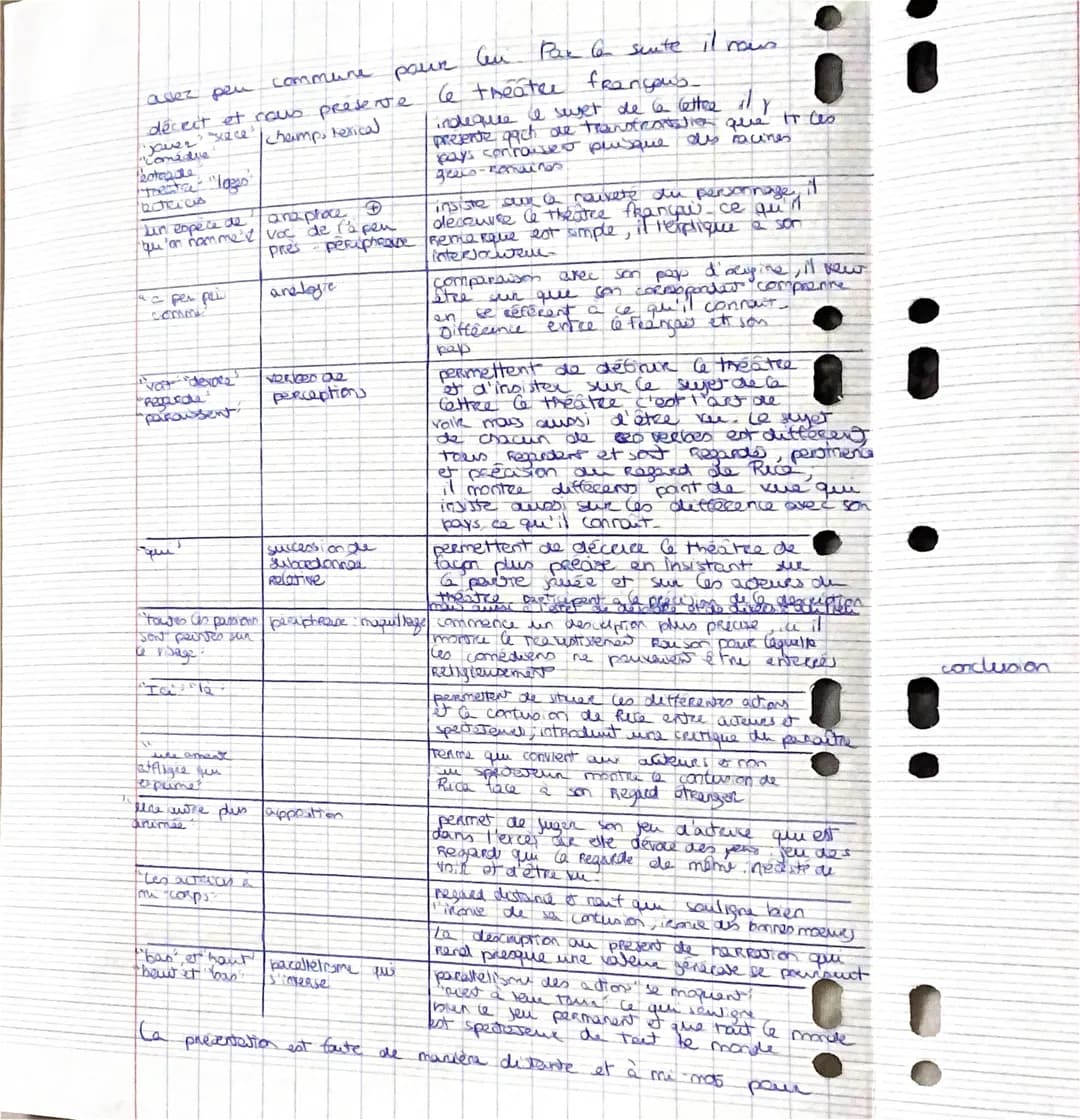 assez peu commune pour lui. Par la suite il nous
décrit et nous présente le théâtre français.
"jouer" "scène"
"comédie"
"théâtre" "loges"
"actrices"
champ lexical
indique le sujet de la lettre il y
présente qqch de que ts ces
pays connaissent puisque des racines
gréco-romaines
"un espèce de"
"qu'on nomme"
anaphore ⊕
voc de l'à peu
près - périphrase
insiste sur la naiveté du personnage, il
découvre le théâtre français. ce qu'il
remarque est simple, il l'explique à son
interlocuteur.
"à peu près
comme"
analogie
comparaison avec son pays d'origine, il veut
être sur que son correspondant comprenne
en se référent à ce qu'il connait.
Différence entre le français et son
pays
"voit" "dévore"
"regarde"
"paraissent"
verbes de
perceptions
permettent de définir le théâtre
et d'insister sur le sujet de la
lettre le théâtre c'est l'art de
voir mais aussi d'être vu. Le sujet
de chacun de ces verbes est différent
tous regardent et sont regardés,
et précision du regard de Rica,
il montre différents point de vue qui
insiste aussi sur les différence avec son
pays, ce qu'il connait.
"qui"
succession de
subordonnée
relative
permettent de décrire le théâtre de
façon plus précise en insistant sur
la jouée et sur les acteurs du
théâtre participent à la précision de la description
"toutes les passions
sont peintes sur
le visage"
périphrase : maquillage
commence un description plus précise, ici il
montre le Raison pour laquelle
les comédiens ne pouvaient être enterrés
religieusement
"Ici" "là"
permettent de situer les différentes actions
et la confusion de Rica entre acteurs et
spectateurs, introduit une critique du paraître
"une amante
affligée qui
exprime"
terme qui convient aux acteurs et non
au spectateur montre la confusion de
Rica face à son regard étranger
"une autre plus
animée"
apposition
permet de juger son jeu d'actrice qui est
dans l'excès car elle dévore des yeux jeu des
regards qui la regarde de même : nécéssité de
voir et d'être vu.
"Les actrices à
mi-corps"
regard distancé et naif qui souligne bien
l'ironie de sa confusion, ironie des bonnes moeurs
La description au présent de narration qui
rend presque une valeur générale se poursuit
"bas" et "haut"
"haut et "bas"
parallélisme qui
s'inverse
parallélisme des action "se moquent"
ce qui souligne
bien le jeu permanent et que tout le monde
est spectateur de tout le monde
La présentation est faite de manière distante et à mi-mots pour
conclusion